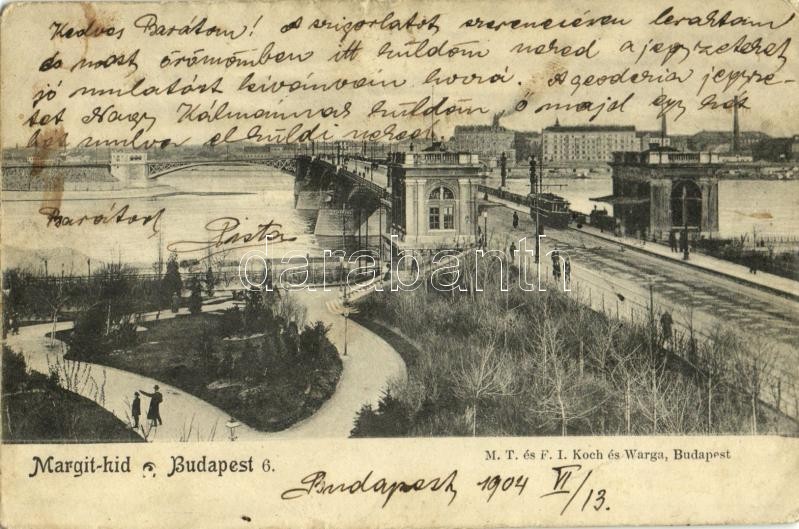 Kedves Barátom! A szigorlatot szerencsésen leraktam
és most örömömben itt küldöm neked a jegyzeteket
jó mulatást kivánván hozzá. A geodezia jegyze-
tet Nagy Kálmánnak küldöm ő majd egy hét
mulva elküldi neked.
Barátod
Pista
darabanth
Margit-hid Budapest 6.
M. T. és F. I. Koch és Warga, Budapest
Budapest 1904 VI/13.